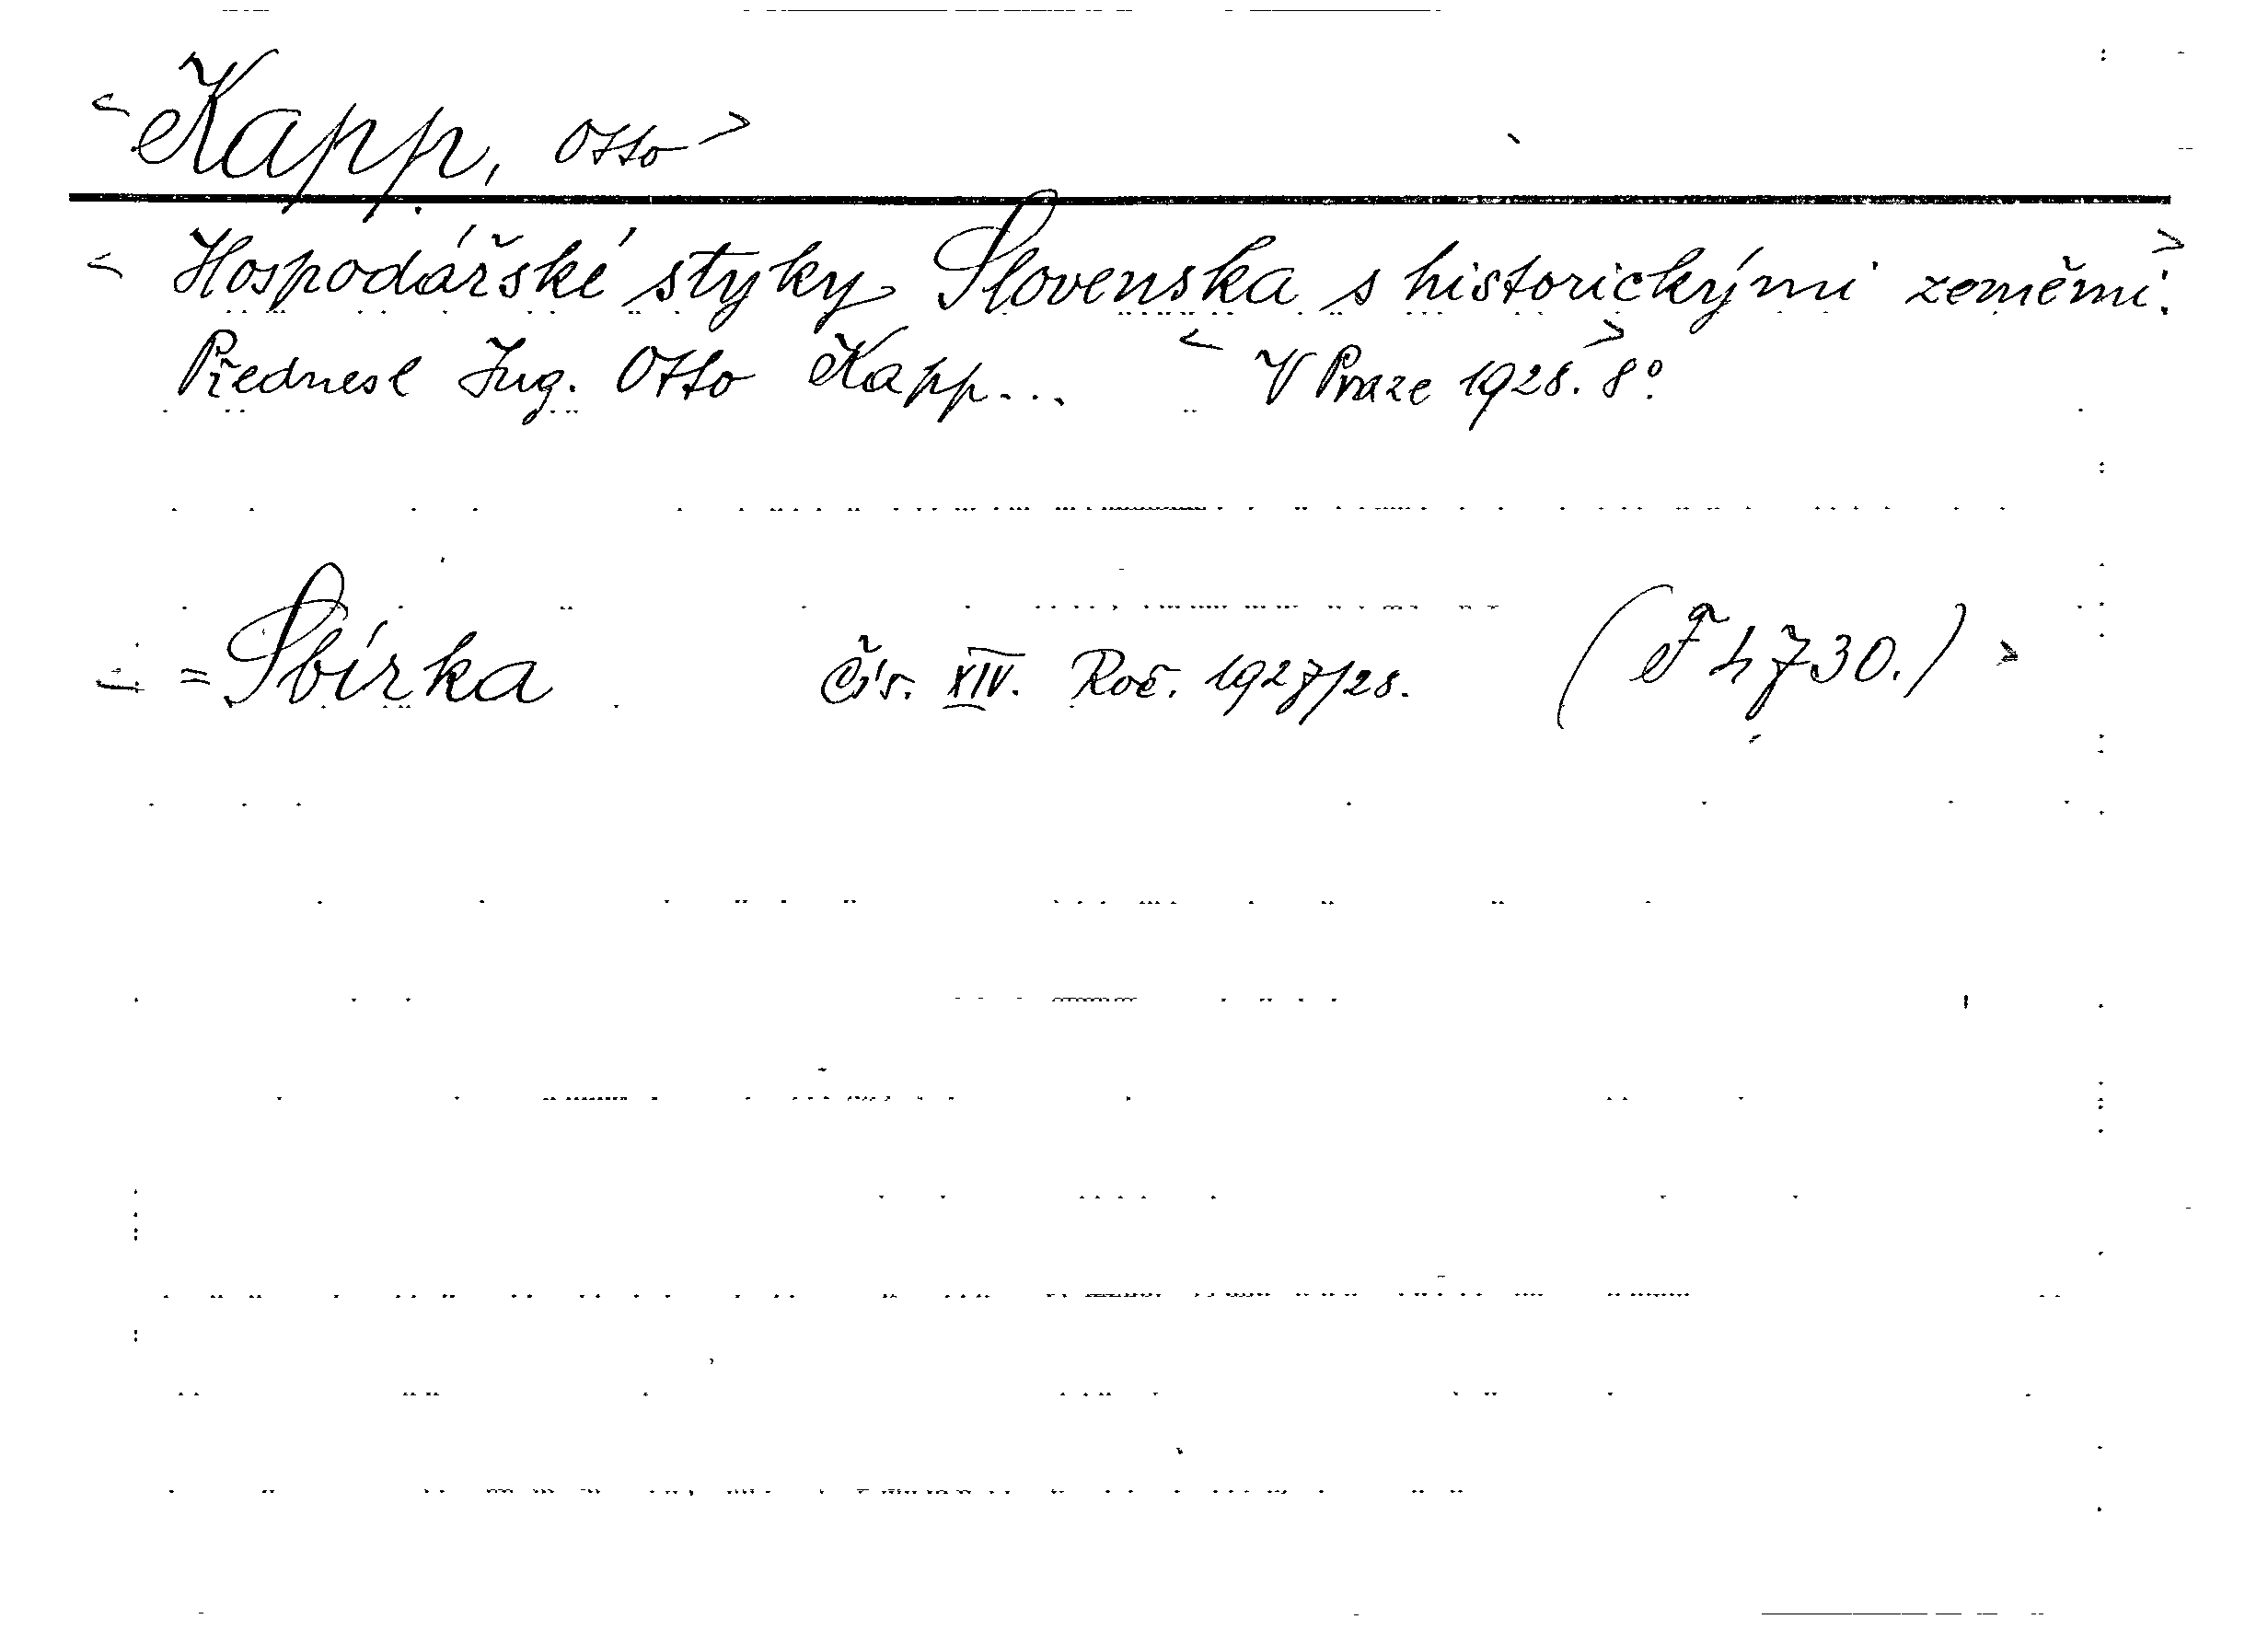 < Kapp, Otto >
< Hospodářské styky Slovenska s historickými zeměmi. >
Přednesl Ing. Otto Kapp... < V Praze 1928. > 8°.
< = Sbírka Čís. XIV. Roč. 1927/28. (F 4730.) >